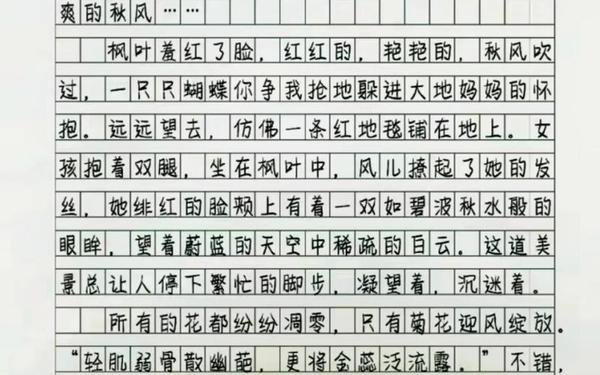 爽的秋风……
枫叶羞红了脸,红红的,艳艳的,秋风吹
过,一只只蝴蝶你争我抢地躲进大地妈妈的怀
抱。远远望去,仿佛一条红地毯铺在地上。女
孩抱着双腿,坐在枫叶中,风儿撩起了她的发
丝,她绯红的脸颊上有着一双如碧波秋水般的
眼眸,望着蔚蓝的天空中稀疏的白云。这道美
景总让人停下繁忙的脚步,凝望着,沉迷着。
所有的花都纷纷凋零,只有菊花迎风绽放。
“轻肌弱骨散幽葩,更将金蕊泛流霞。”不错,